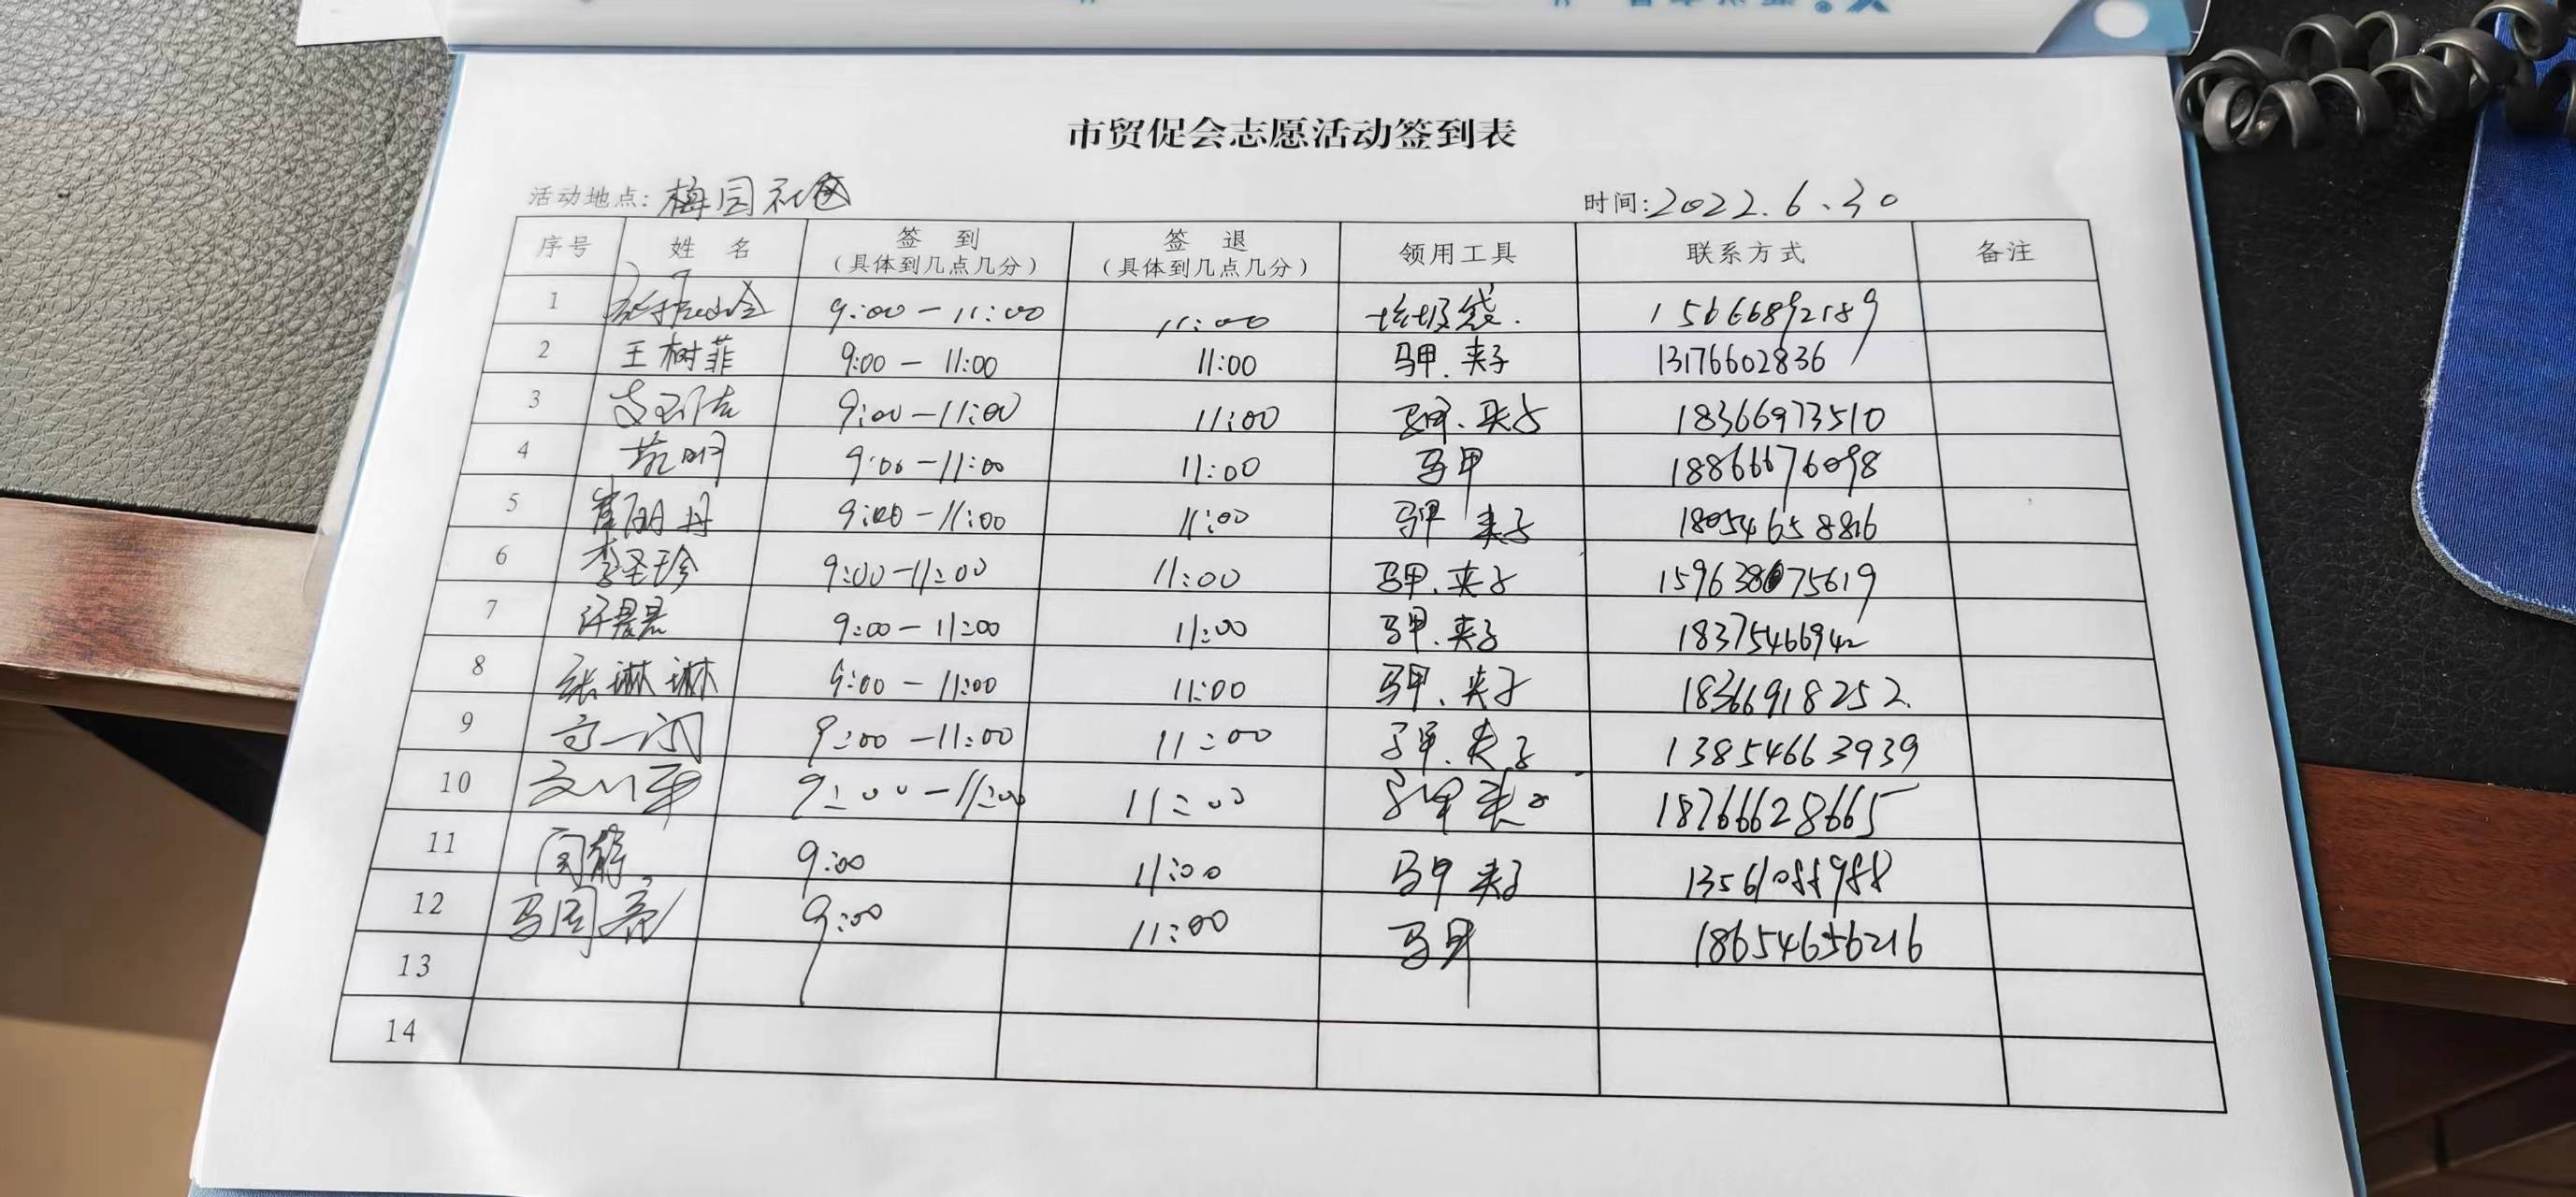 市贸促会志愿活动签到表
活动地点: 梅园社区 时间: 2022.6.30
序号 姓 名 签 到 (具体到几点几分) 签 退 (具体到几点几分) 领用工具 联系方式 备注
1 9:00-11:00 11:00 垃圾袋. 15666892189
2 王树菲 9:00-11:00 11:00 马甲、夹子 13176602836
3 9:00-11:00 11:00 马甲、夹子 18366973510
4 9:00-11:00 11:00 马甲 18866676098
5 崔丽丹 9:00-11:00 11:00 马甲 夹子 18054658816
6 李圣珍 9:00-11:00 11:00 马甲、夹子
7 许晨晨 9:00-11:00 11:00 马甲、夹子 18375466942
8 张琳琳 9:00-11:00 11:00 马甲、夹子 18366918252
9 9:00-11:00 11:00 马甲、夹子 13854663939
10 9:00-11:00 11:00 马甲 夹子 18766628665
11 闫静 9:00 11:00 马甲 夹子 13561088988
12 马周亮 9:00 11:00 马甲 18654656216
13
14